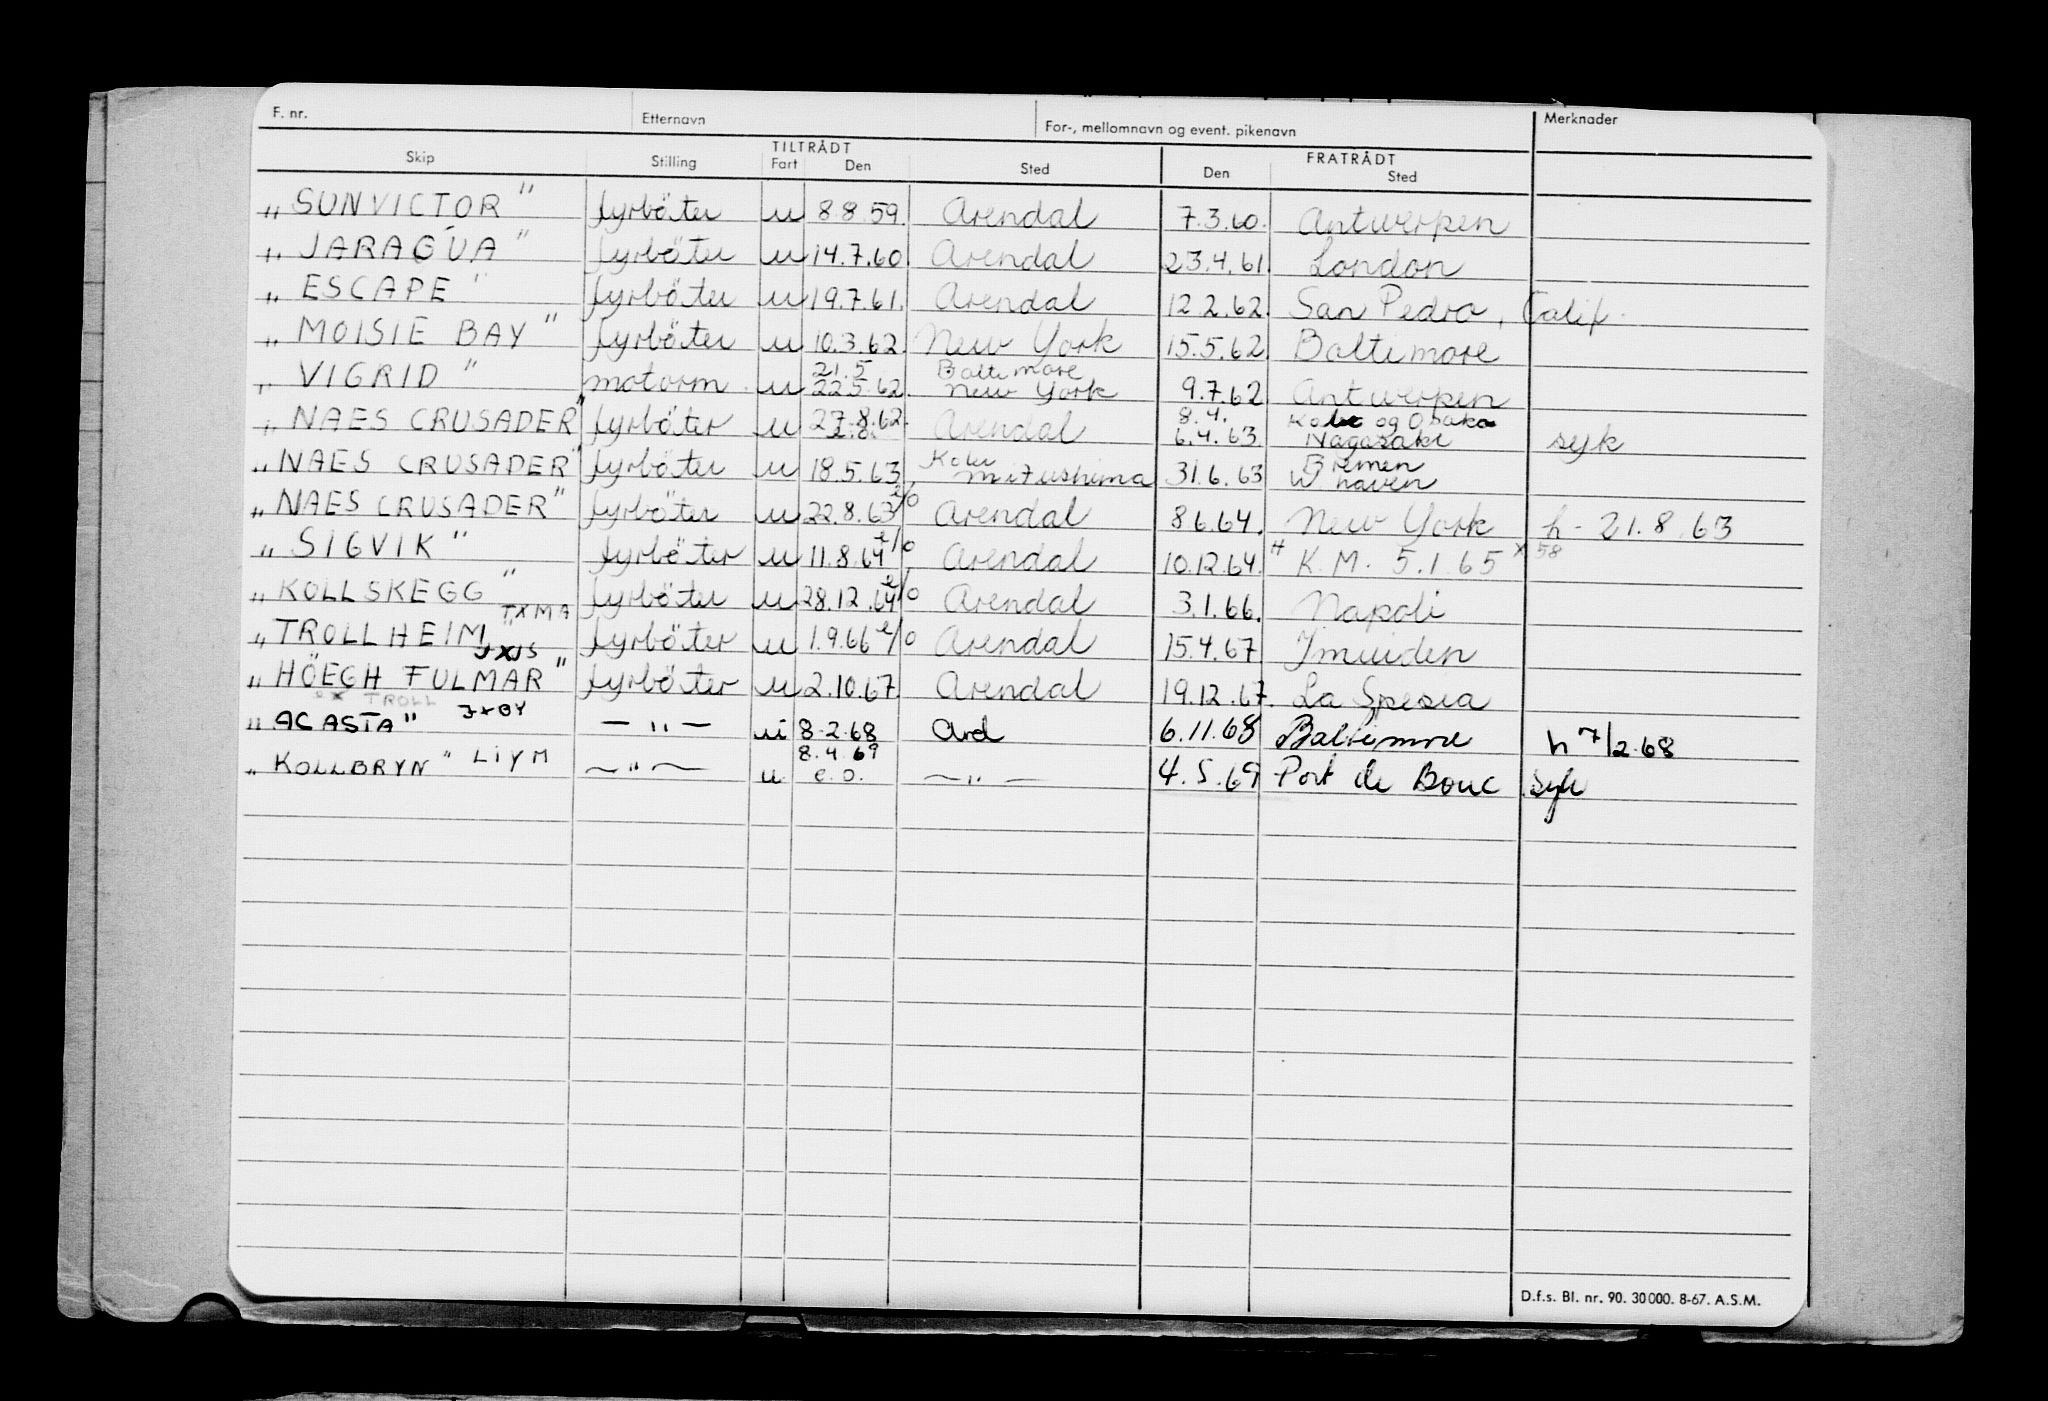 F. nr. Etternavn For-, mellomnavn og event. pikenavn Merknader
TILTRÅDT FRATRÅDT
Skip Stilling Fart Den Sted Den Sted
„ SUNVICTOR " fyrböter u 8.8.59. Arendal 7.3.60. Antwerpen
„ JARAGUA " fyrböter u 14.7.60. Arendal 23.4.61. London
„ ESCAPE " fyrböter u 19.7.61. Arendal 12.2.62. San Pedro, Calif.
„ MOISIE BAY " fyrböter u 10.3.62. New York 15.5.62. Baltimore
21.5 Baltimore
„ VIGRID " motorm. u 22.5.62. New York 9.7.62 Antwerpen
8.4. Kobe og Osaka
„ NAES CRUSADER" fyrböter u 27.8.62. Arendal 6.4.63 Nagasaki syk
Kobe Bremen
„ NAES CRUSADER" fyrböter u 18.5.63, Mizushima 31.6.63 W haven
„ NAES CRUSADER" fyrböter u 22.8.63 e/o Arendal 8.6.64. New York h - 21.8.63
„ SIGVIK " fyrböter u 11.8.64 e/o Arendal 10.12.64. " K.M. 5.1.65 x 58
„ KOLLSKEGG " fyrböter u 28.12.64 e/o Arendal 3.1.66. Napoli
JXMA
„ TROLLHEIM " fyrböter u 1.9.66 e/o Arendal 15.4.67 Ymuiden
JXJS
„ HÖEGH FULMAR " fyrböter u 2.10.67. Arendal 19.12.67. La Spezia
ex TROLL
„ ACASTA " JXBY — „ — ui 8.2.68 Ard 6.11.68 Baltimore h 7/2.68
8.4.69
„ KOLLBRYN " LIYM — „ — u e.o. — „ — 4.5.69 Port de Bouc syk
D.f.s. Bl. nr. 90. 30000. 8-67. A.S.M.